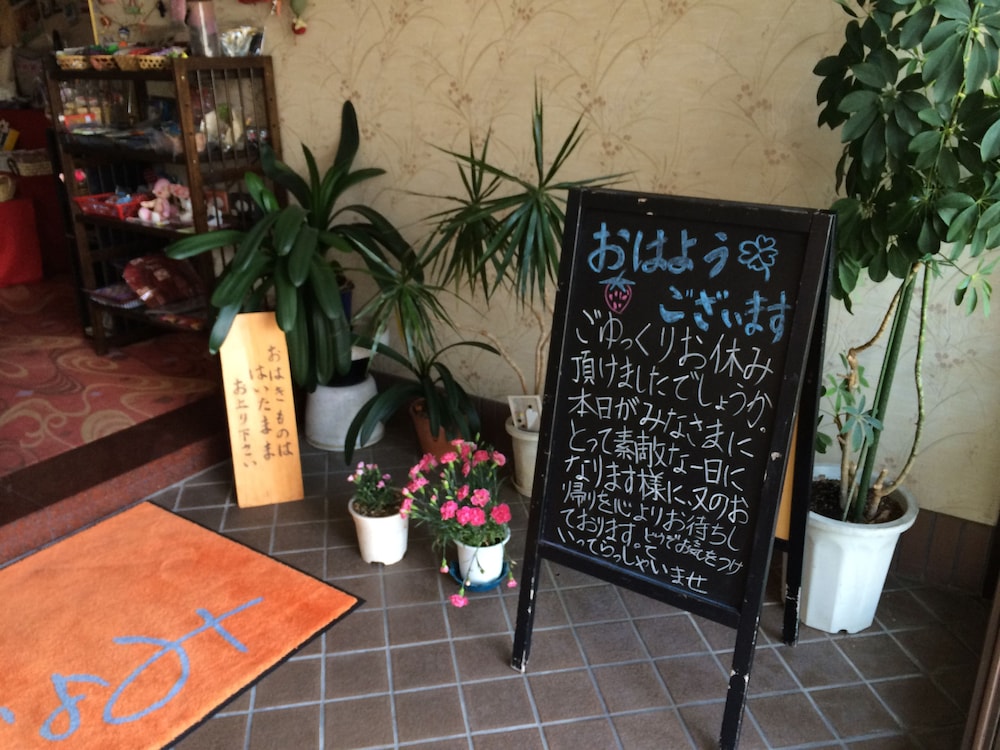 おはよう
ございます
ごゆっくりお休み
頂けましたでしょうか。
本日がみなさまに
とって素敵な一日に
なります様に、又のお
帰りを心よりお待ちし
ております。どうぞお気をつけ
いってらっしゃいませ
おはきものは
はいたまま
お上り下さい